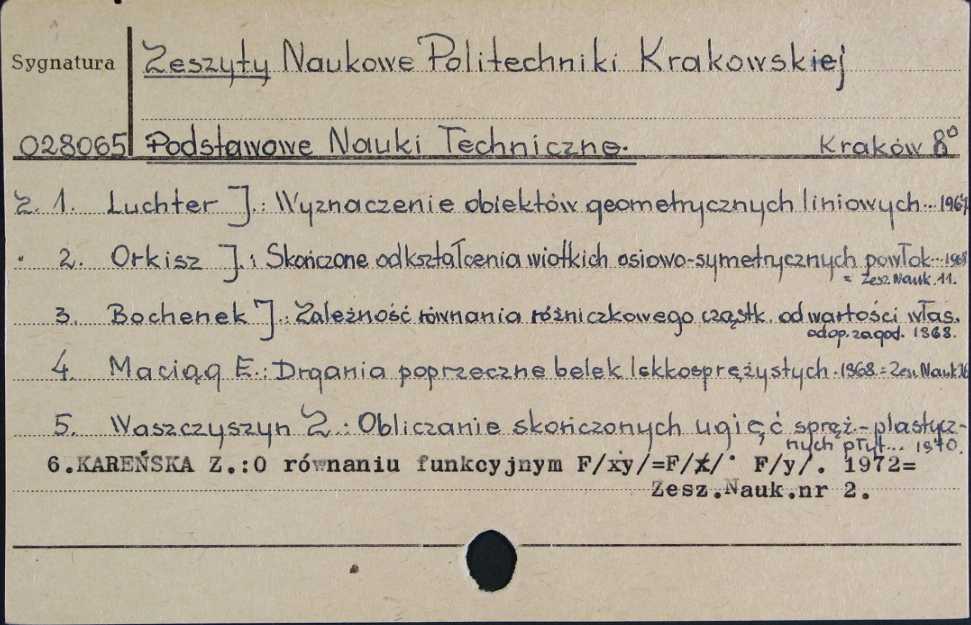 Sygnatura
Zeszyty Naukowe Politechniki Krakowskiej
028065 Podstawowe Nauki Techniczne. Kraków 8°
Z. 1. Luchter J.: Wyznaczenie obiektów geometrycznych liniowych... 1967
2. Orkisz J.: Skończone odkształcenia wiotkich osiowo-symetrycznych powłok... 1968
= Zesz. Nauk. 11.
3. Bochenek J.: Zależność równania różniczkowego cząstk. od wartości włas.
odop. zagod. 1968.
4. Maciąg E.: Drgania poprzeczne belek lekkosprężystych. 1968 = Zesz. Nauk. 16
5. Waszczyszyn Z.: Obliczanie skończonych ugięć spręż-plastycz-
nych płyt... 1970.
6.KAREŃSKA Z.:O równaniu funkcyjnym F/xy/=F/x/· F/y/. 1972=
Zesz.Nauk.nr 2.